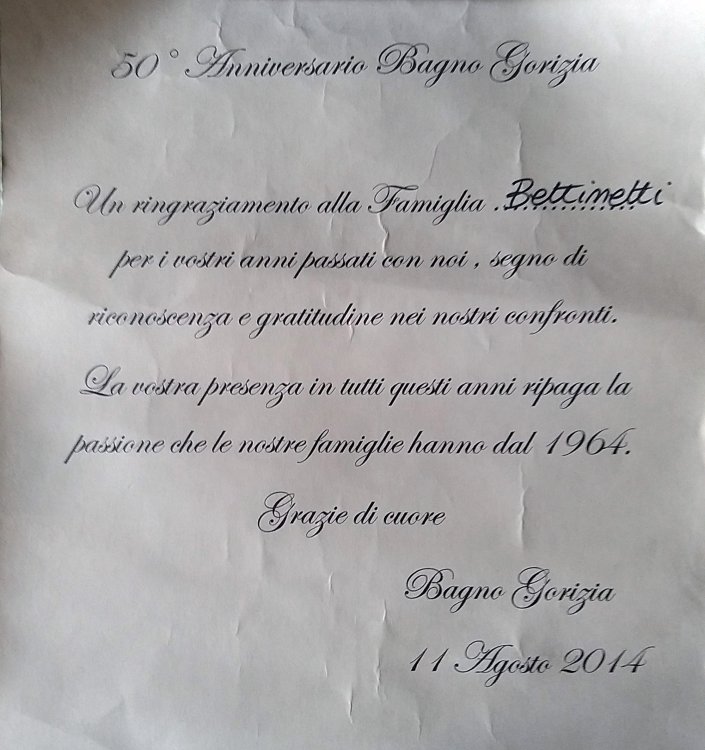 50° Anniversario Bagno Gorizia
Un ringraziamento alla Famiglia .Bettinetti
per i vostri anni passati con noi , segno di
riconoscenza e gratitudine nei nostri confronti.
La vostra presenza in tutti questi anni ripaga la
passione che le nostre famiglie hanno dal 1964.
Grazie di cuore
Bagno Gorizia
11 Agosto 2014